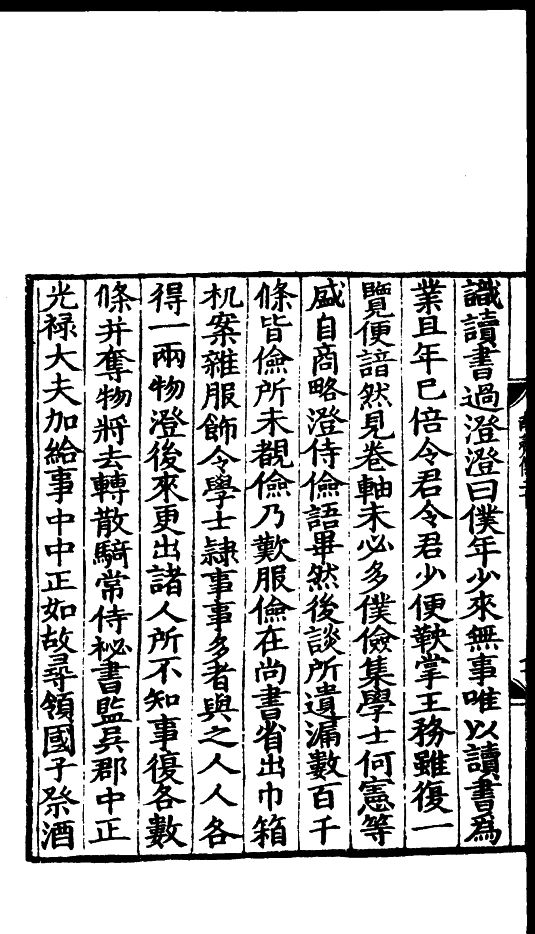 識讀書過澄澄曰僕年少來無事唯以讀書爲
業且年已倍令君令君少便鞅掌王務雖復一
覽便諳然見卷軸未必多僕儉集學士何憲等
盛自商略澄侍儉語畢然後談所遺漏數百千
條皆儉所未覩儉乃歎服儉在尚書省出巾箱
机案雜服飾令學士隷事事多者與之人人各
得一兩物澄後來更出諸人所不知事復各數
條并奪物將去轉散騎常侍祕書監吳郡中正
光禄大夫加給事中中正如故尋領國子祭酒